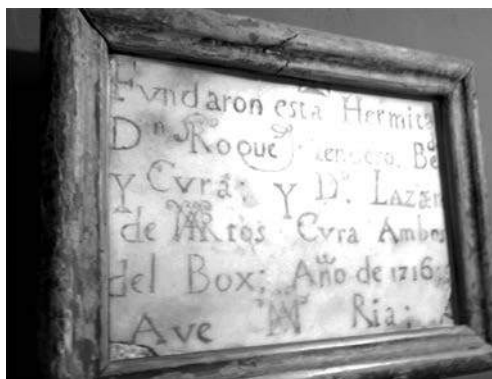 Fvndaron esta Hermita
Dⁿ Roque
Y Cvra; Y Dⁿ. Lazar
de MARtos Cvra Ambos
del Box; Año de 1716;
Ave MA Ria;